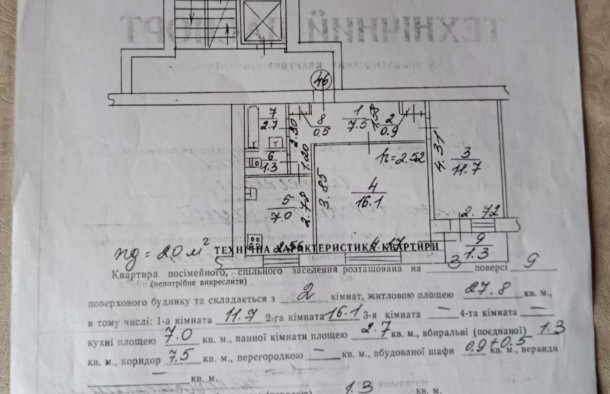 46
7
2.7
8
0.5
1
7.5
2
0.9
2.30
1.20
6
1.3
h=2.52
4.31
3
11.7
3.85
4
16.1
5
7.0
2.78
2.72
9
1.3
2.56
4.17
ТЕХНІЧНА ХАРАКТЕРИСТИКА КВАРТИРИ
Квартира посімейного, спільного заселення розташована на 3 поверсі 9
(непотрібне викреслити)
поверхового будинку та складається з 2 кімнат, житловою площею 27.8 кв. м.,
в тому числі: 1-а кімната 11.7 2-га кімната 16.1 3-я кімната — 4-та кімната —
кухні площею 7.0 кв. м., ванної кімнати площею 2.7 кв. м., вбиральні (поєднаної) 1.3
кв. м., коридор 7.5 кв. м., перегородкою — кв. м., вбудованої шафи 0.9+0.5 кв. м., веранди
— кв. м.
1.3 кв. м.